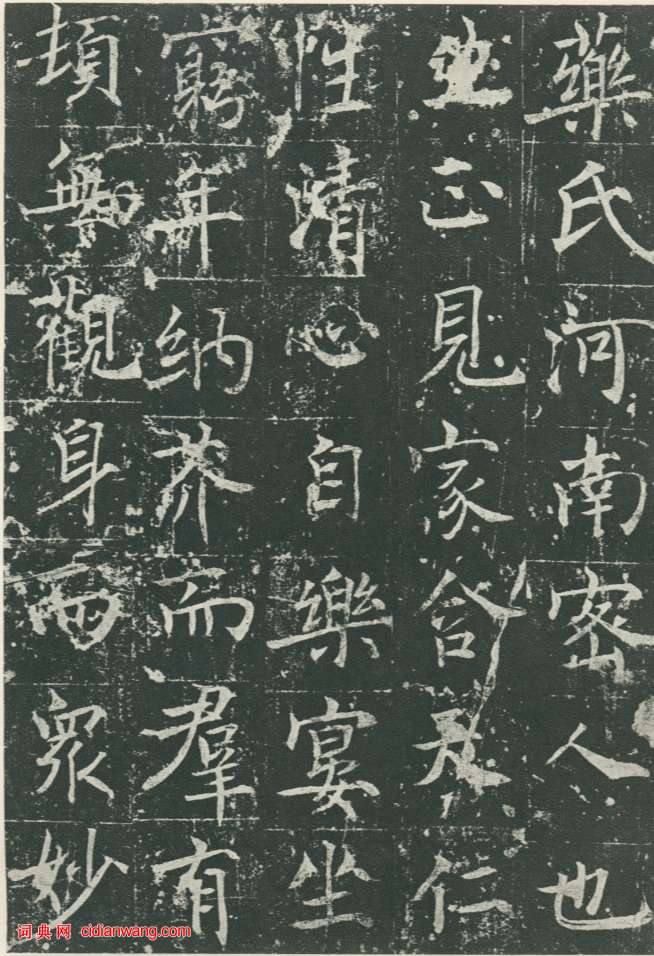 藥氏河南密人也
正見家合仁
性清心自樂宴坐
窮年納芥而羣有
頃無觀身而眾妙
词典网 cidianwang.com